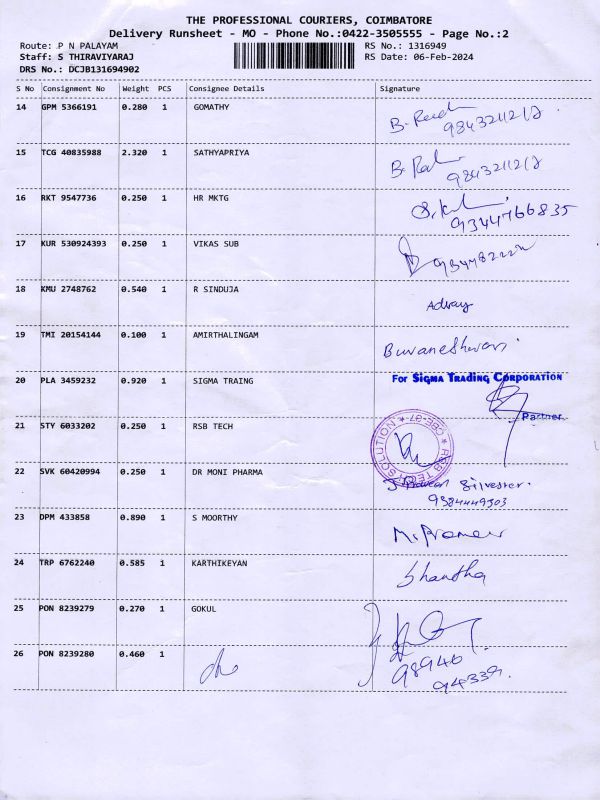 THE PROFESSIONAL COURIERS, COIMBATORE
Delivery Runsheet - MO - Phone No.:0422-3505555 - Page No.:2
Route: P N PALAYAM
RS No.: 1316949
Staff: S THIRAVIYARAJ
RS Date: 06-Feb-2024
DRS No.: DCJB131694902
S No Consignment No Weight PCS Consignee Details Signature
14 GPM 5366191 0.280 1 GOMATHY
9843211212
15 TCG 40835988 2.320 1 SATHYAPRIYA
9843211212
16 RKT 9547736 0.250 1 HR MKTG
9344766835
17 KUR 530924393 0.250 1 VIKAS SUB
18 KMU 2748762 0.540 1 R SINDUJA
19 TMI 20154144 0.100 1 AMIRTHALINGAM
Buvaneshwari
20 PLA 3459232 0.920 1 SIGMA TRAING
For SIGMA TRADING CORPORATION
Partner
21 STY 6033202 0.250 1 RSB TECH
RSB TECH SOLUTION * CBE-37 *
22 SVK 60420994 0.250 1 DR MONI PHARMA
Silvester
9384449503
23 DPM 433858 0.890 1 S MOORTHY
24 TRP 6762240 0.585 1 KARTHIKEYAN
Shantha
25 PON 8239279 0.270 1 GOKUL
26 PON 8239280 0.460 1
98940
94339.